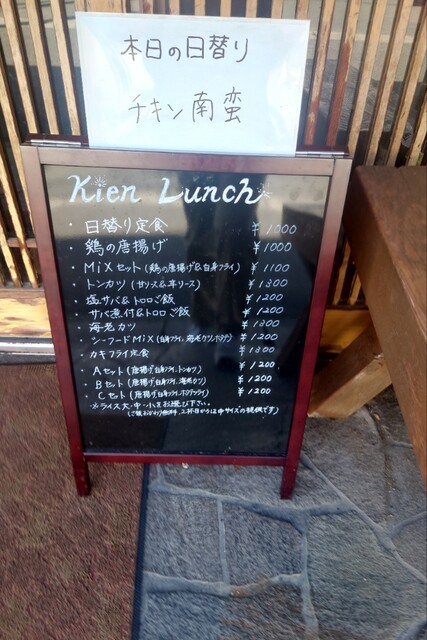 本日の日替り
チキン南蛮
Kien Lunch
・日替り定食 ¥1000
・鶏の唐揚げ ¥1000
・MiXセット(鶏の唐揚げ&白身フライ) ¥1100
・トンカツ(甘ソース&辛ソース) ¥1300
・塩サバ&トロロご飯 ¥1200
・サバ煮付&トロロご飯 ¥1200
・海老カツ ¥1300
・シーフードMiX(白身フライ,海老カツ,ホタテ) ¥1200
・カキフライ定食 ¥1300
・Aセット(唐揚げ,白身フライ,トンカツ) ¥1200
・Bセット(唐揚げ,白身フライ,海老カツ) ¥1200
・Cセット(唐揚げ,白身フライ,ホタテフライ) ¥1200
※ライス大・中・小をお選び下さい。
(ご飯おかわり無料,2杯目からは中サイズの提供です)